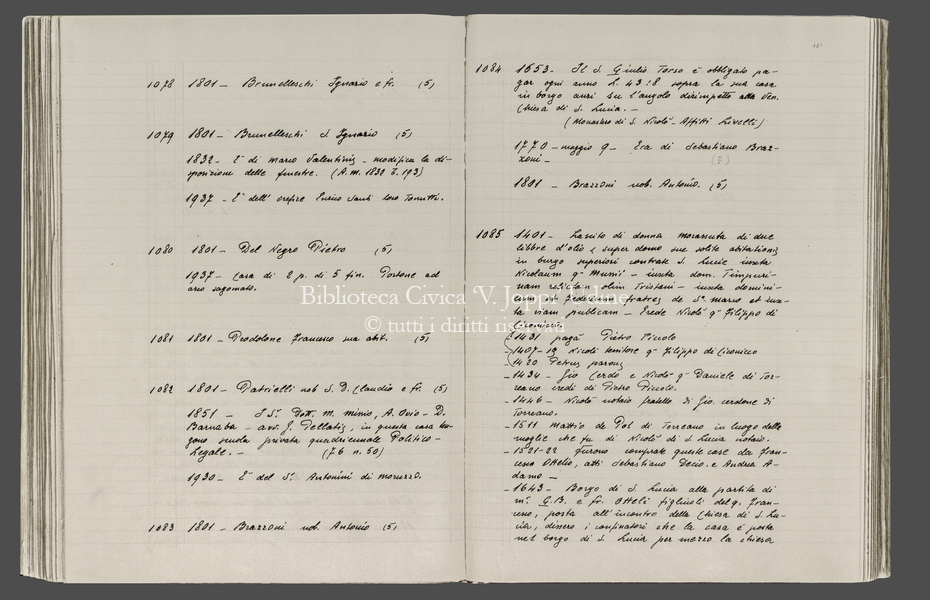 1078 1801 - Brunelleschi Ignazio e fr. (5)
1079 1801 - Brunelleschi d Ignazio (5)
1832 - E' di Mario Valentinis - modifica la di-
sposizione delle finestre. (A.M. 1832 193)
1937 - E' dell' orefice Enrico Santi loro Tonutti.
1080 1801 - Del Negro Pietro (5)
1937 - Casa di 2 p. di 5 fin. Portone ad
arco sagomato.
1081 1801 - Prodolone Francesco sua abit. (5)
1082 1801 - Patrielli nob S. D. Claudio e fr. (5)
1851 - I Sr. Dott. M. Misio, A. Ovio - D.
Barnaba - avv. G. Pellatis, in questa casa ten-
gono scuola privata quadriennale Politico -
Legale. - (76 n. 50)
1930 - E' del Sr. Antonini di Moruzzo.
1083 1801 - Brazzoni nob. Antonio (5)
1084 1653 - Il S. Giulio Torso è obbligato pa-
gar ogni anno L. 43:8 sopra la sua casa
in borgo su l'angolo dirimpetto alla Ven.
Chiesa di S. Lucia. -
(Monastero di S. Nicolò - Affitti Livelli)
1770 - maggio 9 - Era di Sebastiano Braz-
zoni -
1801 - Brazzoni nob. Antonio. (5)
1085 1401 - Lascito di donna Morassuta di due
libbre d'olio super domo sue solite abitationis
in burgo superiori contrate S. Lucie iuxta
Nicolaum qm - iuxta dom.
relicta olim Tristani - iuxta domini-
cum et fratres de Sto Mario et iux-
ta viam publicam - Erede Nicolò qm Filippo di
Biblioteca Civica 'V. Joppi' Udine
© tutti i diritti riservati
1431 pagà Pietro Piccolo
- 1407-19 Nicolò tentore qm Filippo di
1420 Petrus
- 1434 - Gio Cerdo e Nicolò qm Daniele di Tor-
reano eredi di Pietro Piccolo.
- 1446 - Nicolò notaio fratello di Gio. cerdone di
Torreano.
- 1511 Mattio de Pol di Torreano in luogo della
moglie che fu di Nicolò di S. Lucia notaio.
- 1521-22 Furono comprate queste case da Fran-
cesco Ottelio, atti Sebastiano Decio e Andrea A-
damo -
- 1643 - Borgo di S. Lucia alla partita di
mr. G.B. e fr. Ottelì figliuoli del q. Fran-
cesco, posta all'incontro della Chiesa di S. Lu-
cia, dissero i confinatori che la casa è posta
nel borgo di S. Lucia per mezzo la chiesa